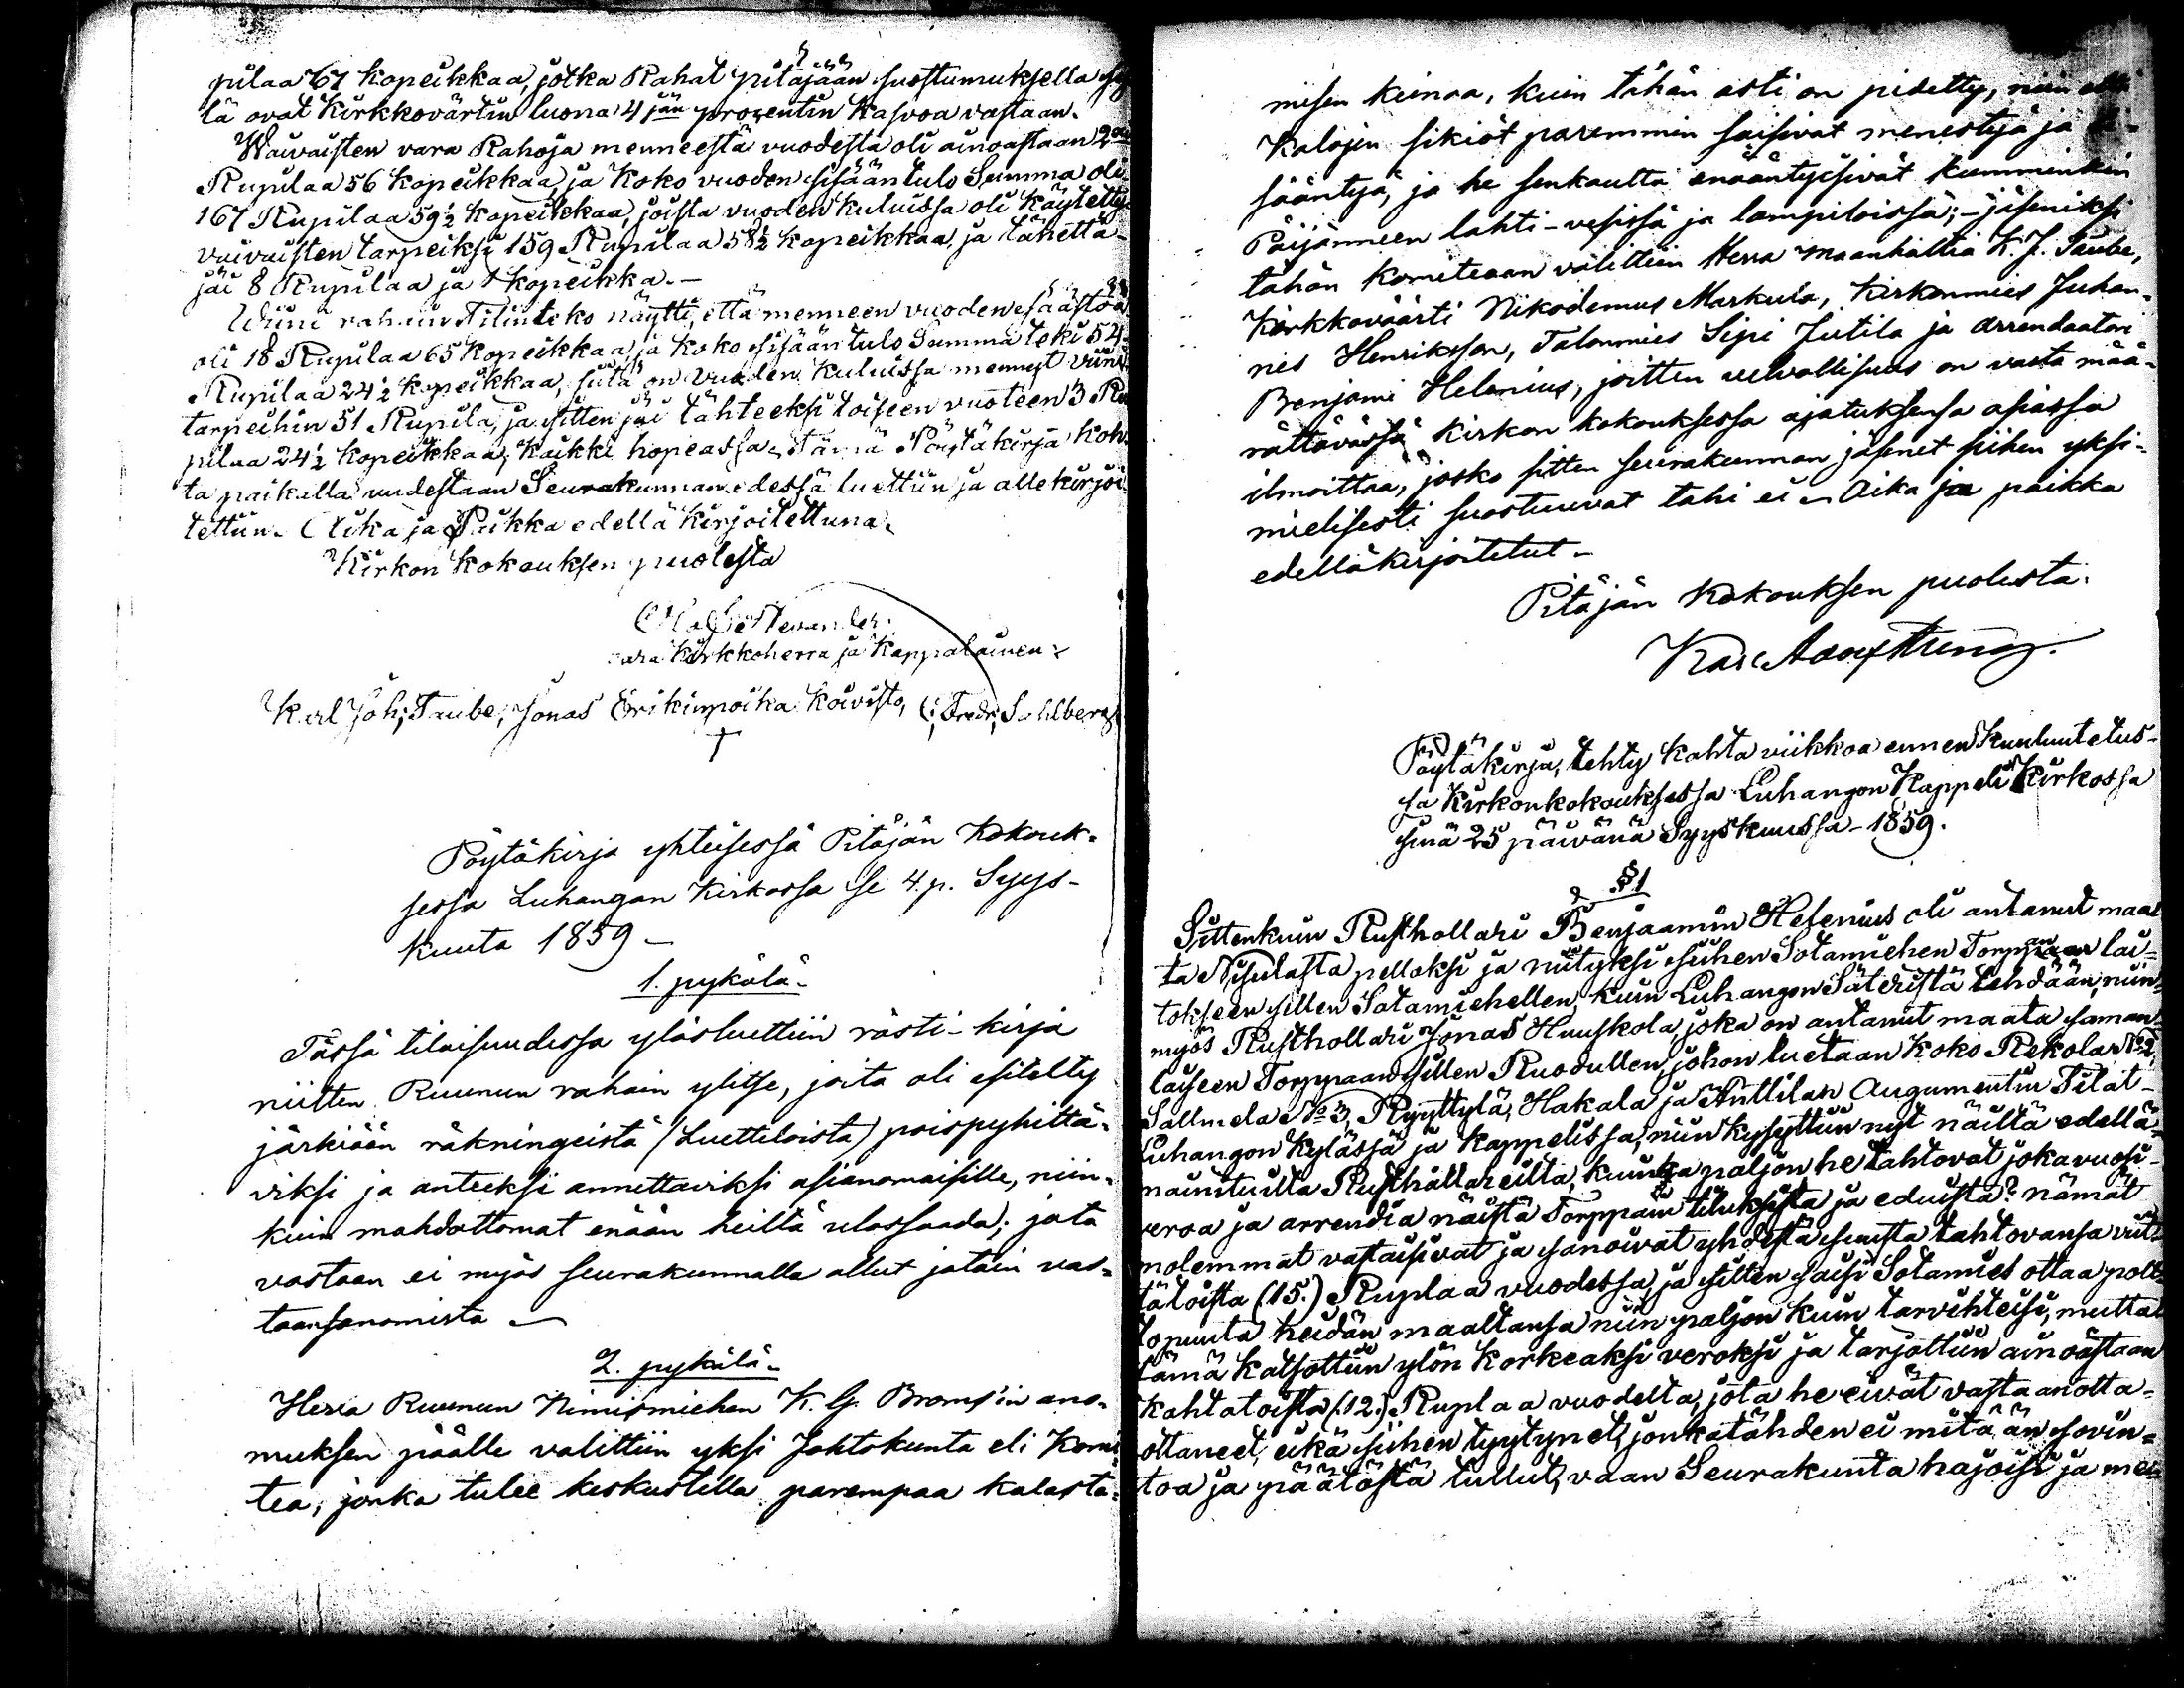 pilaa 67 kopeikkaa, jotka Rahat pitäjään suostumuksella
lä ovat Kirkkovärtin luona 4 jän prozentin Kasvoa vastaan.
Waivaisten vara Rahoja menneestä vuodesta oli ainoastaan 2
Rupilaa 56 kopeikkaa, ja Koko vuoden sisääntulo Summa oli
167 Rupilaa 59½ kopeikkaa, joista vuoden kuluissa oli käytetty
vaivaisten tarpeiksi 159 Rupilaa 58½ kopeikkaa, ja tähettä-
jäi 8 Rupilaa ja 1 kopeikka.-
Wiini rahain Tilinteko näytti, että menneen vuoden säästöä
oli 18 Rupilaa 65 kopeikkaa, ja koko sisääntulo Summa teki 54
Rupilaa 24½ kopeikkaa, siitä on vuoden kuluissa mennyt viini
tarpeihin 51 Rupila, ja sitten jäi tähteeksi toiseen vuoteen 3 Ru
pilaa 24½ kopeikkaa, kaikki hopeassa. Tämä Pöytäkirja koh-
ta paikalla uudestaan Seurakunnan edessä luettiin ja allekirjoi-
tettiin. Aika ja Paikka edellä kirjoitettuna.
Kirkon kokouksen puolesta
vara Kirkkoherra ja Kappalainen.
Karl Joh; Taube, Jonas Erikinpoika Koivisto, Fredr; Sahlberg
Pöytäkirja yhteisessä Pitäjän Kokouk-
sessa Luhangan Kirkossa se 4. p. Syys-
kuuta 1859 -
1. pykälä.
Tässä tilaisuudessa ylösluettiin rästi-kirja
niitten Ruunun rahain ylitse, joita oli esitelty
järkiään räkningeistä (Luetteloista) poispyhittä-
viksi ja anteeksi annettaviksi asianomaisille, niin-
kuin mahdottomat enään heiltä ulossaada; jota
vastaan ei myös seurakunnalla ollut jotain vas-
taansanomista -
2. pykälä.
Herra Ruunun Nimismiehen K. G. Broms'in ano-
muksen päälle valittiin yksi Johtokunta eli Komi-
tea, jonka tulee keskustella parempaa kalasta-
misen keinoa, kuin tähän asti on pidetty, niin että
Kalojen sikiöt paremmin saisivat menestyä ja
sääntyä, ja he senkautta enääntyisivät kumminkin
Päijänneen lahti-vesissä ja lampiloissa; - jäseniksi
tähän komiteaan valittiin Herra maanhaltia K. J. Taube,
Kirkkoväärti Nikodemus Markula, Kirkonmies Juhan-
nes Henriksson, Talonmies Sipi Jutila ja arrendaatori
Benjami Helenius, joitten velvollisuus on vasta mää-
rättävässä kirkon kokouksessa ajatuksensa asiassa
ilmoittaa, josko sitten seurakunnan jäsenet siihen yksi-
mielisesti suostuuvat tahi ei - Aika ja paikka
edelläkirjoitetut -
Pitäjän Kokouksen puolesta.
Pöytäkirja, tehty kahta viikkoa ennen kuuluutetus-
sa Kirkonkokouksessa Luhangon Kappeli Kirkossa
sinä 25 päivänä Syyskuussa - 1859.
§ 1
Sittenkuin Rusthollari Benjaamin Helenius oli antanut maa-
ta Nisulasta pelloksi ja niityksi siihen Sotamiehen Torppaan lai-
tokseen sillen Sotamiehellen, kuin Luhangon Säteristä tehdään, niin-
myös Rusthollari Jonas Huuskola, joka on antanut maata saman-
laiseen Torppaan sillen Ruodullen, johon luetaan Koko Rekola № 2,
Sallmela № 3, Ryyttylä, Hakala ja Anttilan Augumentin Tilat-
Luhangon kylässä ja kappelissa, niin kysyttiin nyt näiltä edellä-
nainituilta Rusthållareilta, kuinka paljon he tahtovat jokavuosi-
veroa ja arrendia näistä Torppain tiluksista ja eduista? nämät
molemmat vastaisivat ja sanoivat yhdestä suusta tahtovansa viit-
tätoista (15.) Ruplaa vuodessa, ja sitten saisi Sotamies ottaa polt-
topuuta heidän maaltansa niin paljon kuin tarvihteisi, mutta
tämä katsottiin ylön korkeaksi veroksi ja tarjottiin ainoastaan
kahtatoista (12.) Ruplaa vuodelta, jota he eivät vastaanotta-
ottaneet, eikä siihen tyytynet, jonkatähden ei mitään sovin-
toa ja päätöstä tullut, vaan Seurakunta hajoisi ja